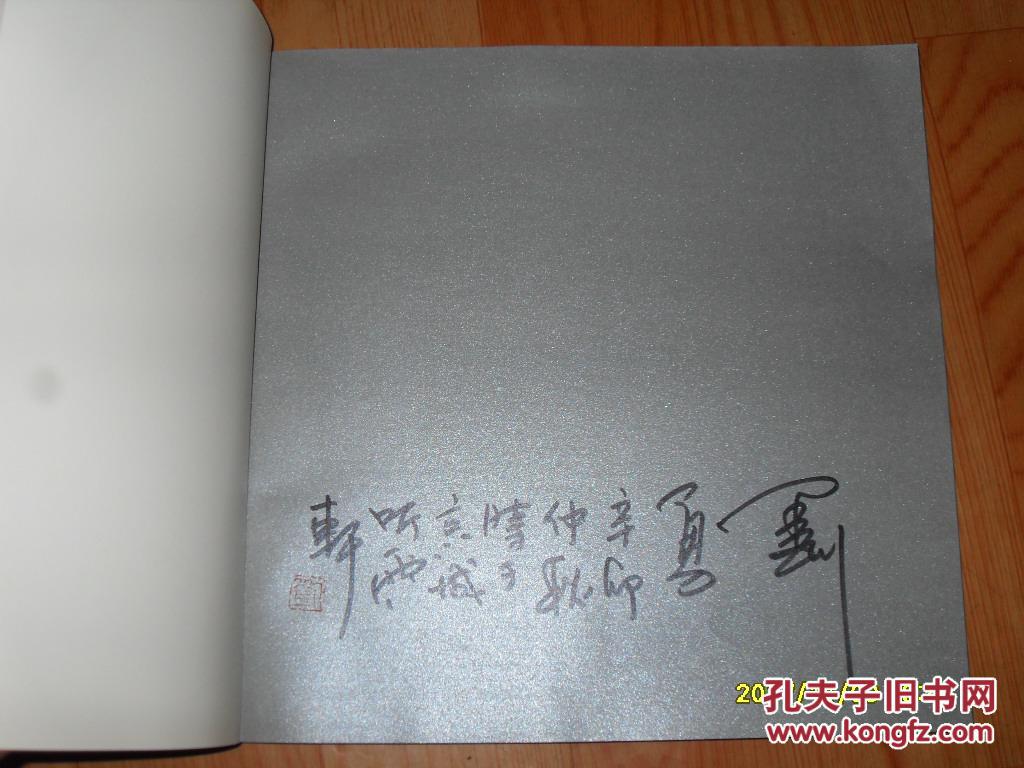 劉
辛卯
仲秋
時于
京城
听雨
軒
孔夫子旧书网
www.kongfz.com